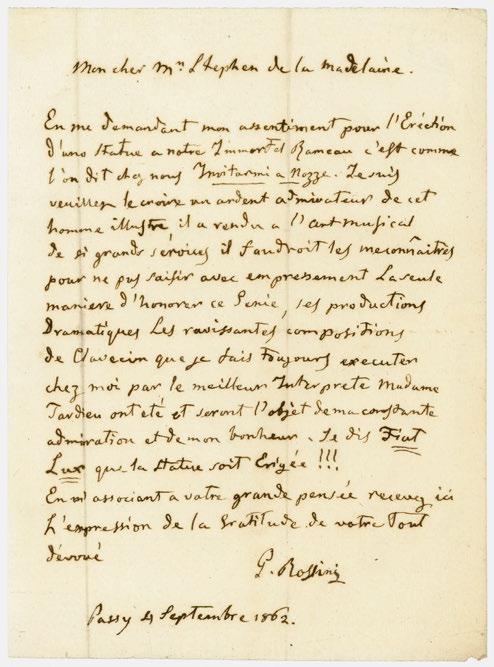 Mon cher Mr. Stephen de la Madelaine.
En me demandant mon assentiment pour l'Eréction
d'une statue a notre Immortel Rameau c'est comme
l'on dit chez nous Invitarmi a Nozze. Je suis
veuillez le croire un ardent admirateur de cet
homme illustre, il a rendu a l'art musical
de si grands sérvices il faudroit les meconnaitres
pour ne pas saisir avec empressement La seule
maniere d'honorer ce Genie, ses productions
Dramatiques Les ravissantes compositions
de Clavecin que je fais Toujours executer
chez moi par le meilleur Interprete Madame
Tardieu ont été et seront l'objet de ma constante
admiration et de mon bonheur. Je dis Fiat
Lux que la statue soit Erigée !!!
En m'associant a votre grande pensée recevez ici
L'expression de la Gratitude de votre Tout
dévoué
G. Rossini
Passy 4 Septembre 1862.